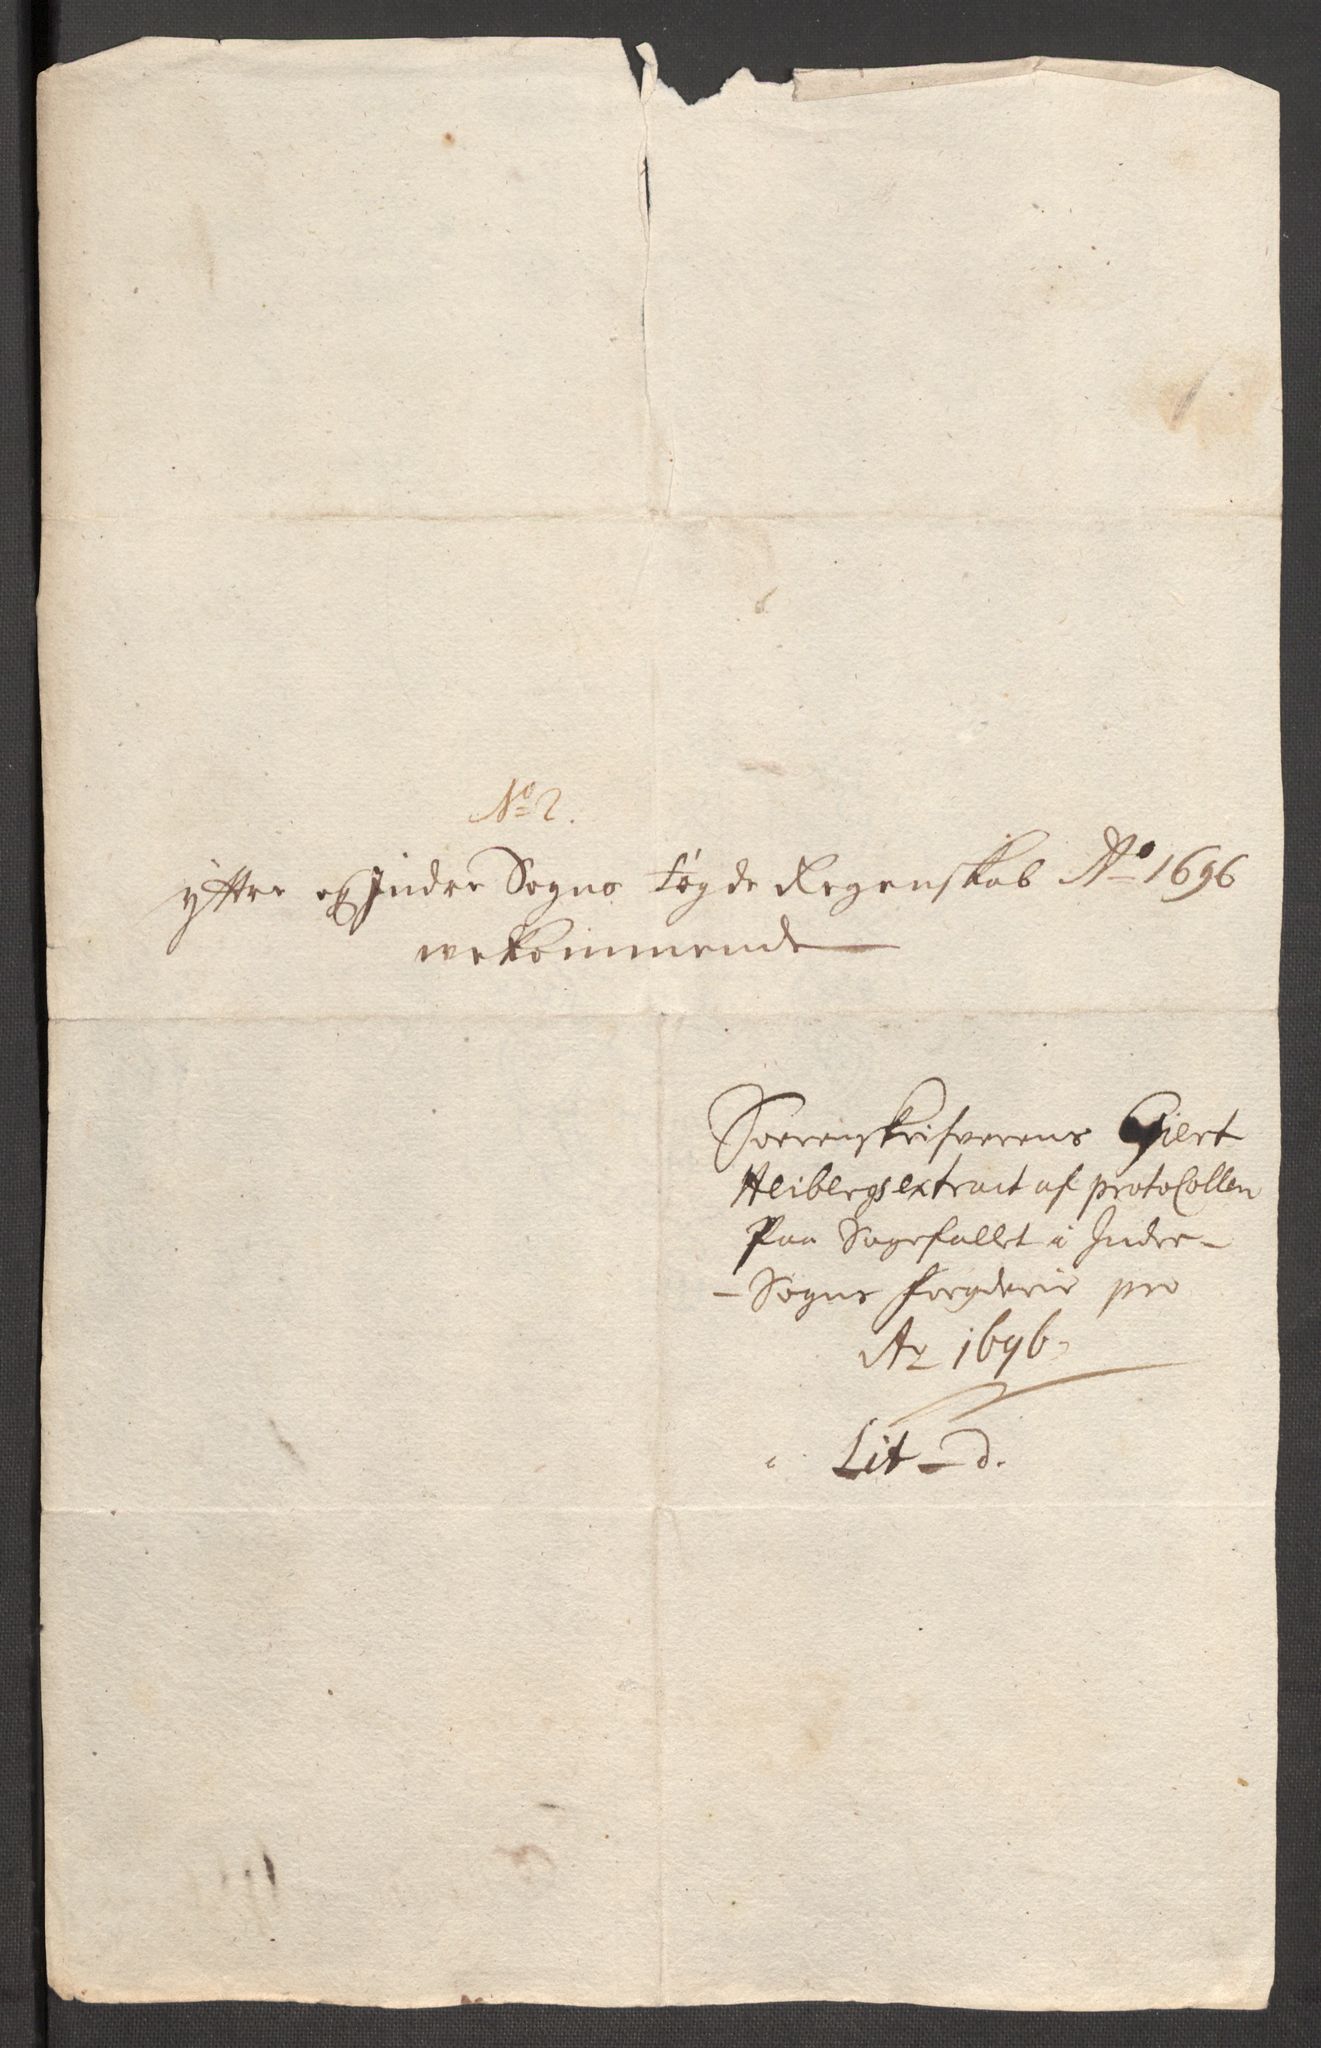 No 2.
ÿttre og Indre Sogns fogde Regenskab Ao 1696
vekommende
Sorenskrifverens Giert
Heibergs extract af protocollen
Paa Sagefallet i Indre-
-Sogns fogderie pro
Ao 1696
Lit - d.